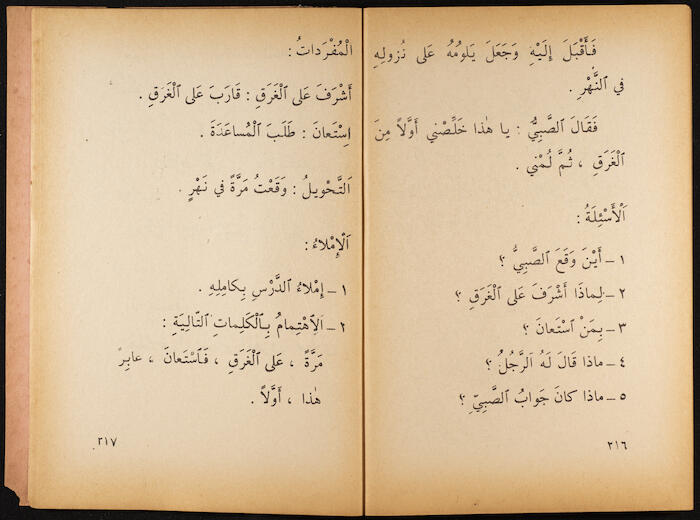 فَأَقْبَلَ إِلَيْهِ وَجَعَلَ يَلُومُهُ عَلى نُزولِهِ
في ٱلنَّهْرِ .
فَقَالَ ٱلصَّبِيُّ : يا هٰذا خَلِّصْني أَوَّلاً مِنَ
ٱلْغَرَقِ ، ثُمَّ لُمْني .
اَلْأَسْئِلَةُ :
١ – أَيْنَ وَقَعَ ٱلصَّبِيُّ ؟
٢ – لِماذا أَشْرَفَ عَلى ٱلْغَرَقِ ؟
٣ – بِمَنْ ٱسْتَعانَ ؟
٤ – ماذا قَالَ لَهُ ٱلرَّجُلُ ؟
٥ – ماذا كانَ جَوابُ ٱلصَّبِيِّ ؟
٢١٦
اَلْمُفْرَداتُ :
أَشْرَفَ عَلى ٱلْغَرَقِ : قَارَبَ عَلى ٱلْغَرَقِ .
اِسْتَعانَ : طَلَبَ ٱلْمُساعَدَةَ .
اَلتَّحْويلُ : وَقَعْتُ مَرَّةً في نَهْرٍ .
اَلْإِمْلاءُ :
١ – إِمْلاءُ ٱلدَّرْسِ بِكامِلِهِ .
٢ – اَلِٱهْتِمامُ بِٱلْكَلِماتِ ٱلتّالِيَةِ :
مَرَّةً ، عَلى ٱلْغَرَقِ ، فَٱسْتَعانَ ، عابِرُ
هٰذا ، أَوَّلاً .
٢١٧